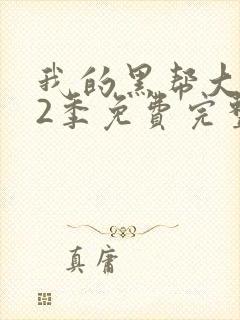 我的黑帮大
2季免費完整
真庸